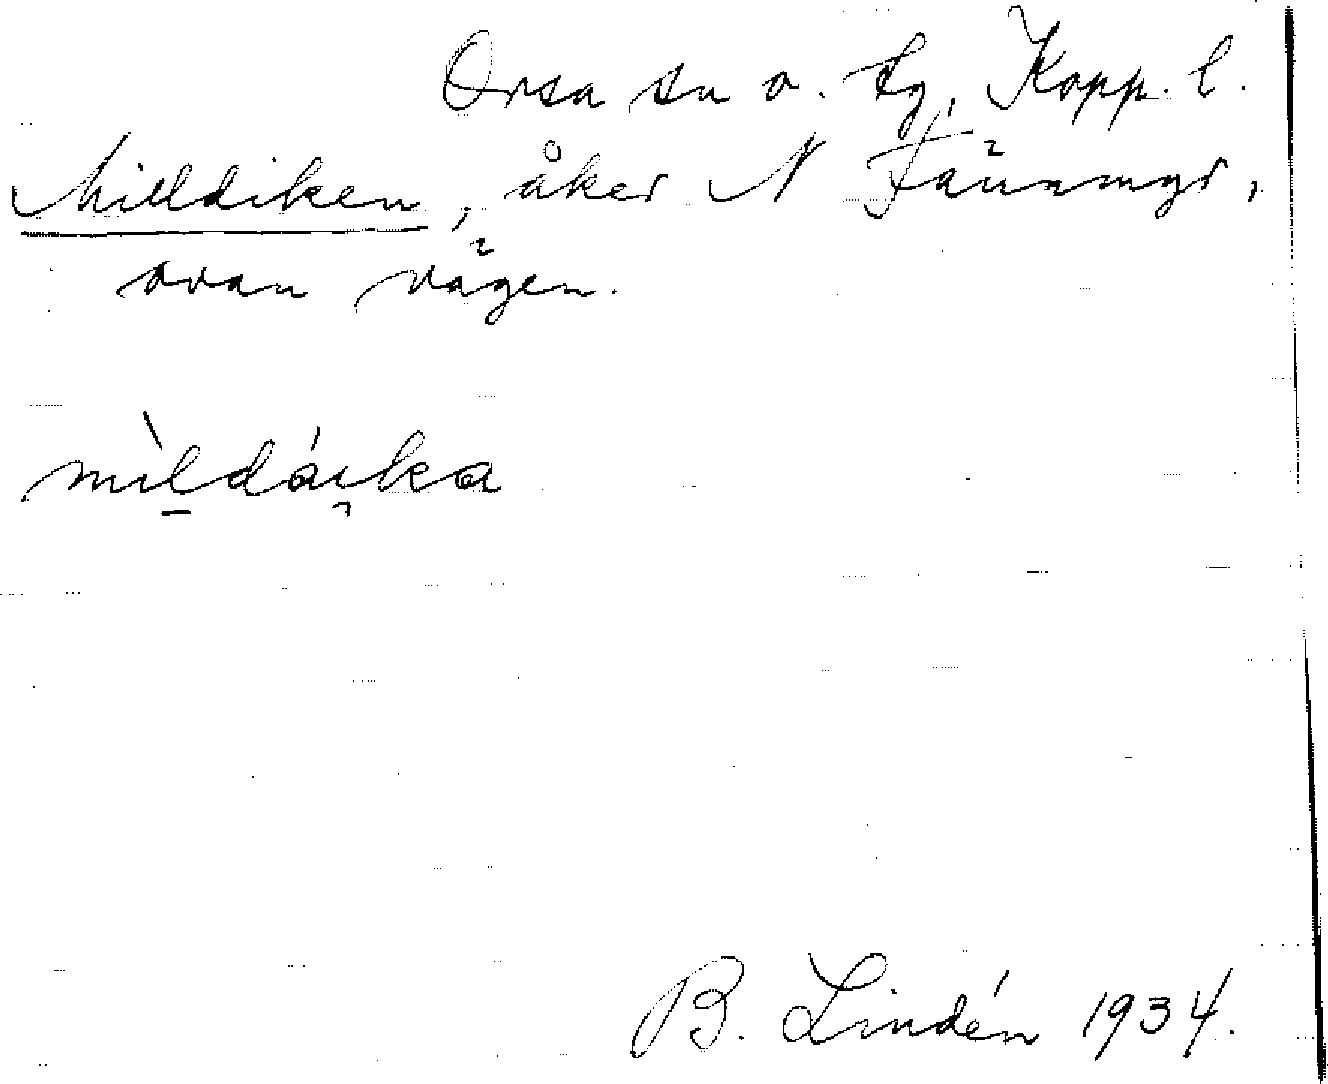 Orsa sn o. tg, Kopp. l.
Milldiken, åker N Fännmyr,
ovan vägen.
mìldáıka
B. Lindén 1934.